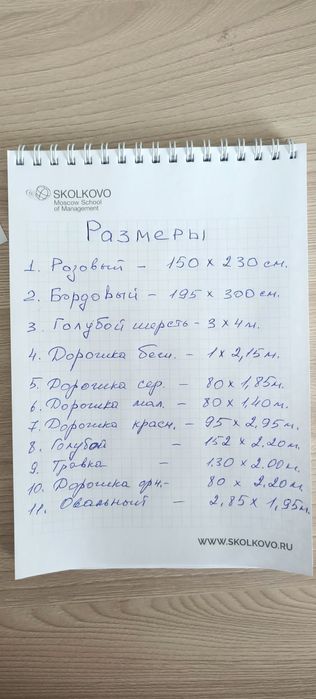 SKOLKOVO
Moscow School
of Management
Размеры
1. Розовый - 150 x 230 см.
2. Бордовый - 195 x 300 см.
3. Голубой шерсть - 3 x 4 м.
4. Дорошка беш. - 1 x 2,15 м.
5. Дорошка сер. - 80 x 1,85 м.
6. Дорошка мал. - 80 x 1,40 м.
7. Дорошка красн. - 95 x 2,95 м.
8. Голубой - 152 x 2.20 м.
9. Травка - 130 x 2.00 м.
10. Дорошка орн. - 80 x 2,20 м
11. Овальный - 2,85 x 1,95 м.
WWW.SKOLKOVO.RU